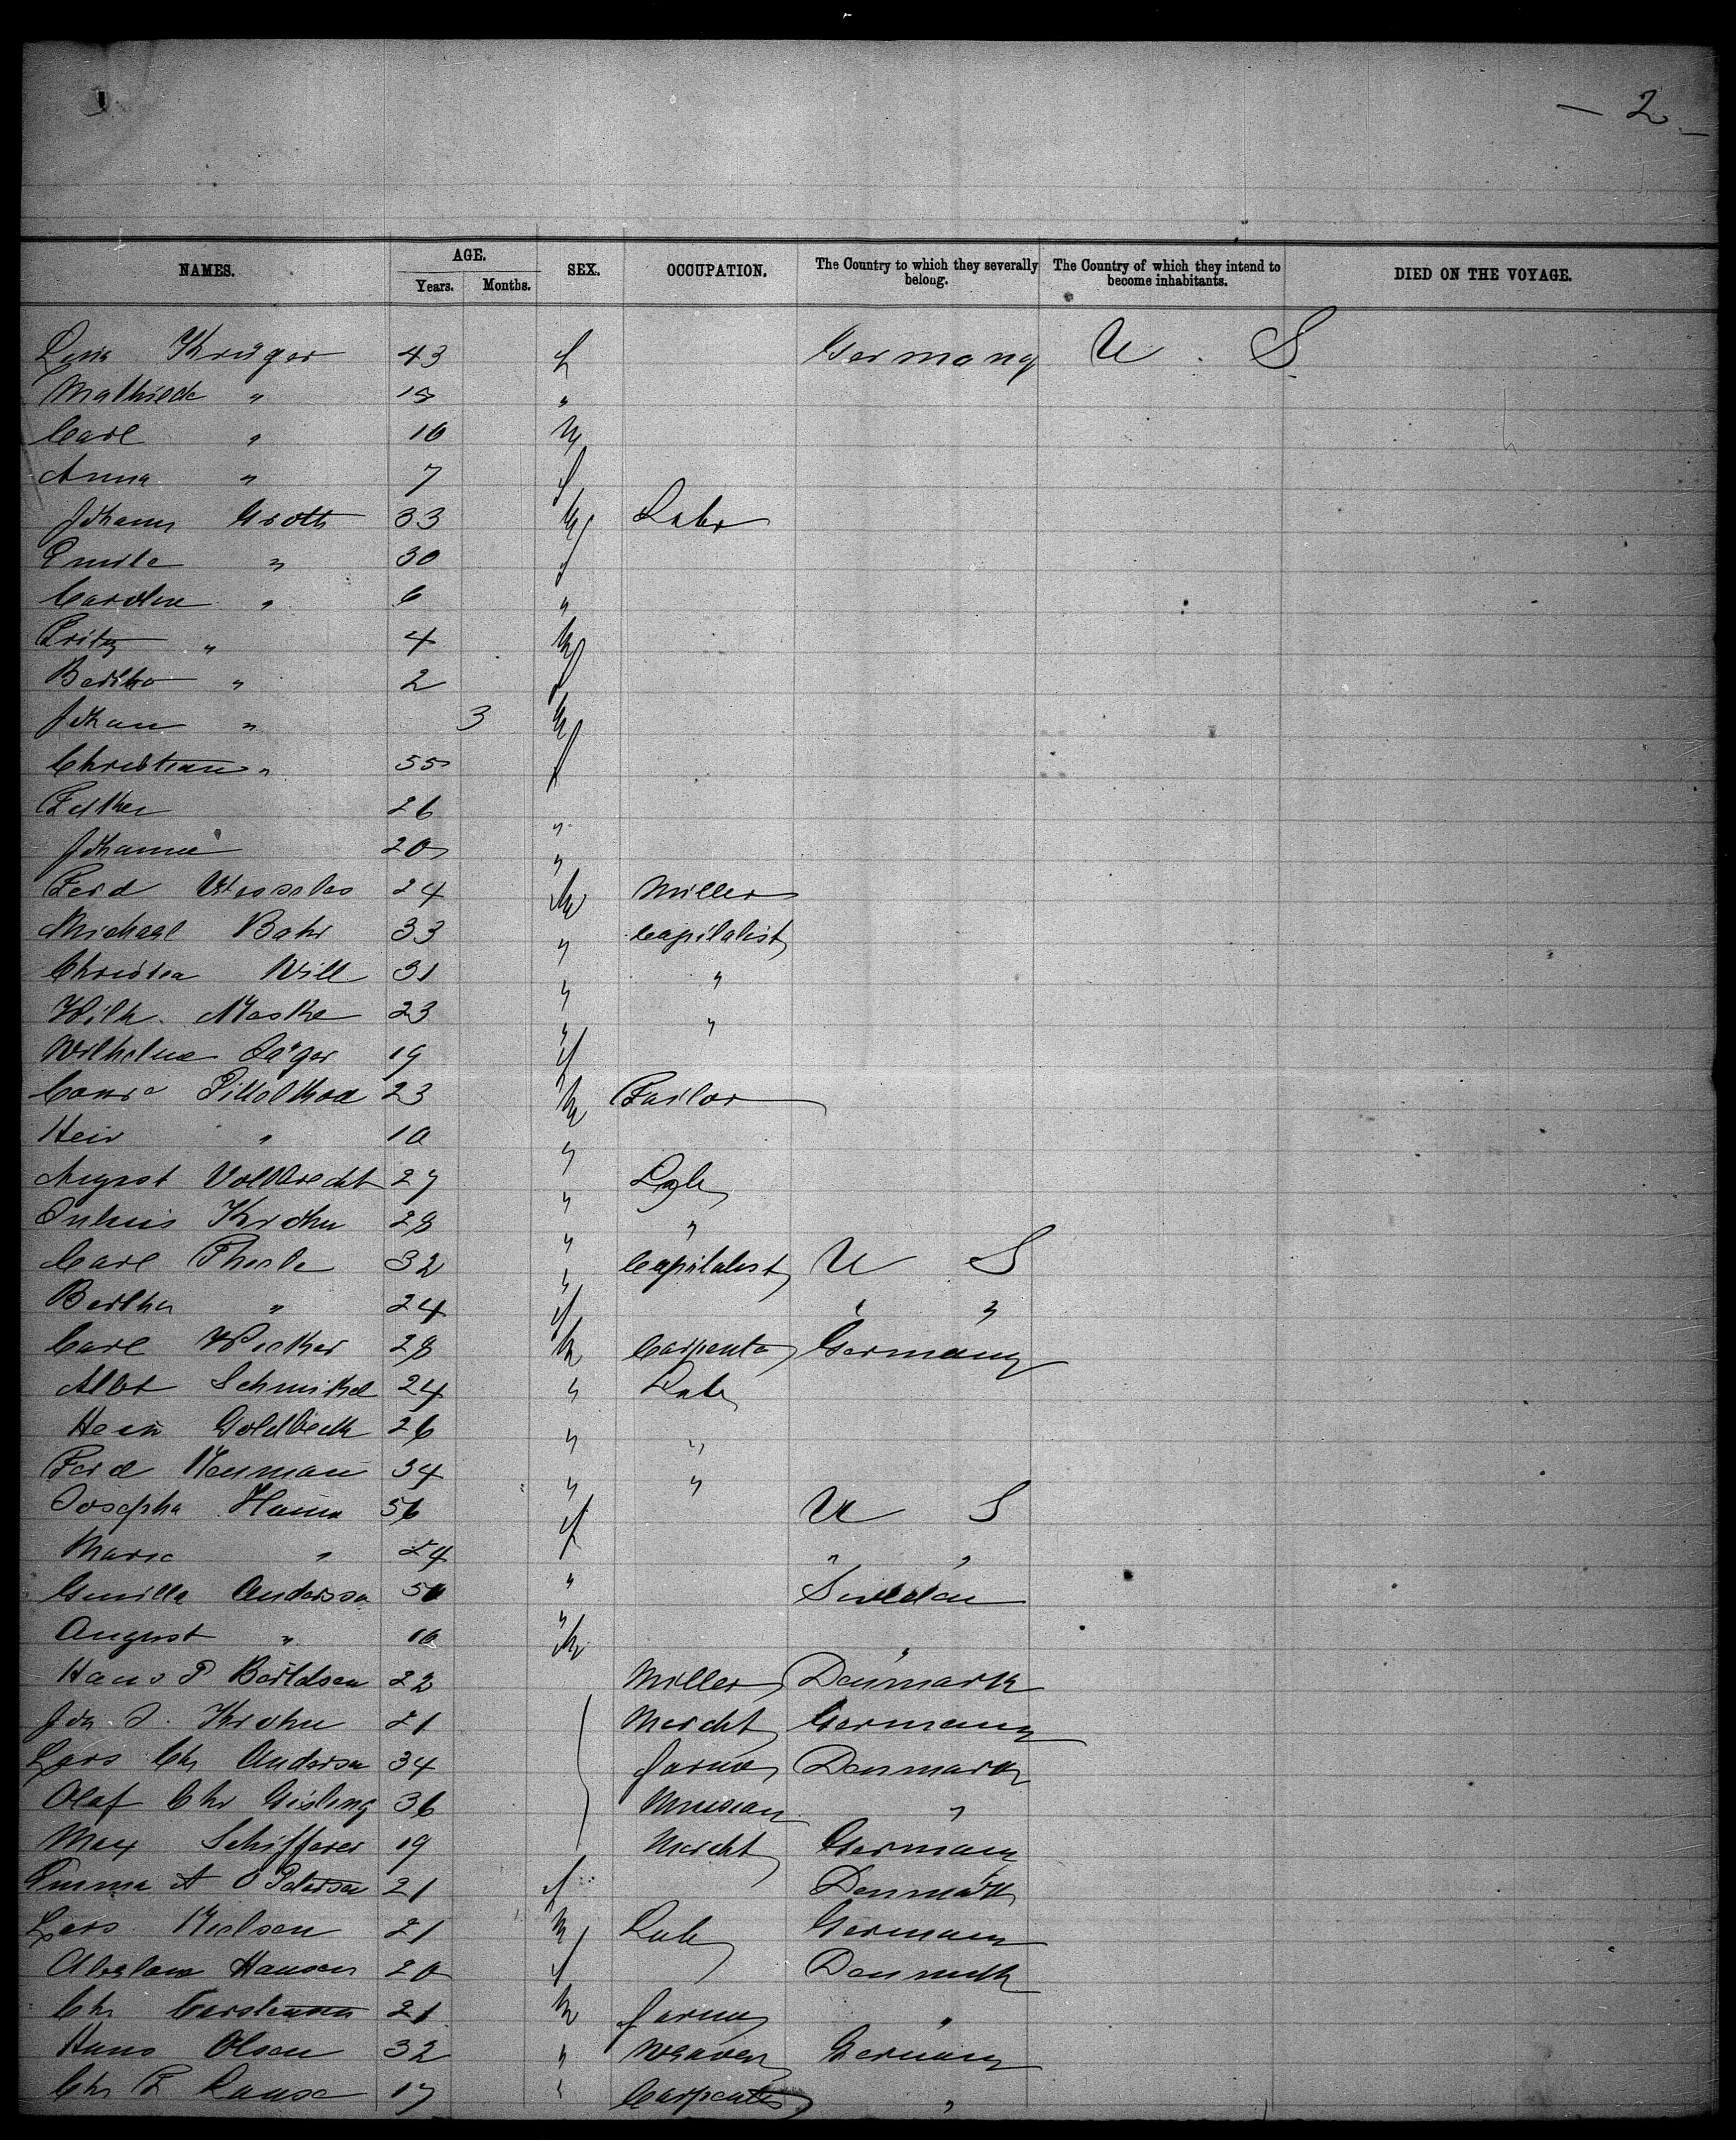 — 2 —
NAMES. AGE. Years. Months. SEX. OCCUPATION. The Country to which they severally belong. The Country of which they intend to become inhabitants. DIED ON THE VOYAGE.
Krüger 43 f Germany U. S.
Mathilde " 15 "
Carl " 10 M
Anna " 7 f
Johann Groth 33 M Labr
Emilie " 30 f
Caroline " 6 "
Fritz " 4 M
Bertha " 2 f
Johann " 3 M
Christian " 55 f
26 "
Johanna 20 "
Ferd 24 M Miller
Michael Bahr 33 " Capitalist
Will 31 " "
Wilh. Maske 23 " "
Wilhelma Jäger 19 f
23 M Tailor
Heir " 10 "
August Vollbrecht 27 " Lab
Julius Krohn 28 " "
Carl 32 " Capitalist U S
Bertha " 24 f " "
Carl 28 M Carpenter Germany
Albt 24 " Lab
Goldbeck 26 " "
Ferd Neumann 34 " "
Josepha 56 f U S
Maria " 24 " " "
Gunilla Andersson 50 " Sweden
August " 10 M "
Hans P Bertelsen 22 Miller Denmark
Joh J. Krohn 21 Mercht Germany
Lars Chr Andersen 34 farmer Denmark
Olaf Chr Gisling 36 Musician "
Max Schifferer 19 Mercht Germany
Emma A O Petersen 21 f Denmark
Lars Nielsen 21 M Lab Germany
Hansen 20 f Denmark
Chr 21 M farmer "
Hans Olsen 32 " Weaver Germany
Chr F 17 " Carpenter "